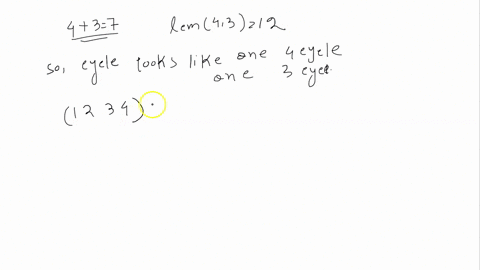 4+3=7 lcm(4,3)=12
so, cycle looks like one 4 cycle
one 3 cycle
(1 2 3 4)